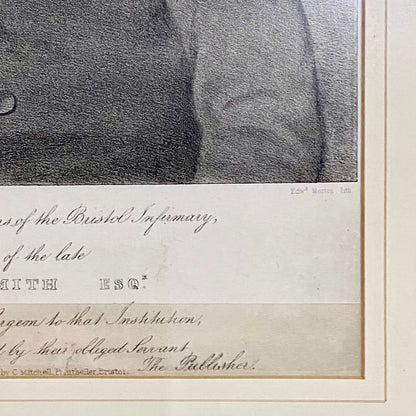 Edwd. Morton lith.
rs of the Bristol Infirmary,
of the late
MITH ESQR.
urgeon to that Institution,
d by their obliged Servant
The Publisher.
by C. Mitchell, Printseller, Bristol.